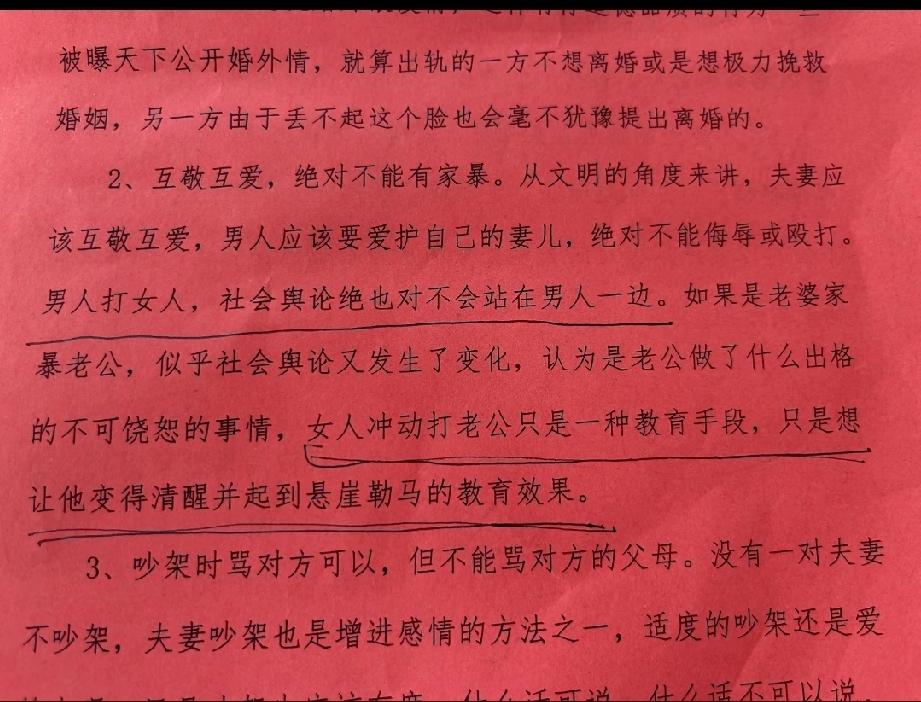 被曝天下公开婚外情，就算出轨的一方不想离婚或是想极力挽救
婚姻，另一方由于丢不起这个脸也会毫不犹豫提出离婚的。
2、互敬互爱，绝对不能有家暴。从文明的角度来讲，夫妻应
该互敬互爱，男人应该要爱护自己的妻儿，绝对不能侮辱或殴打。
男人打女人，社会舆论绝也对不会站在男人一边。如果是老婆家
暴老公，似乎社会舆论又发生了变化，认为是老公做了什么出格
的不可饶恕的事情，女人冲动打老公只是一种教育手段，只是想
让他变得清醒并起到悬崖勒马的教育效果。
3、吵架时骂对方可以，但不能骂对方的父母。没有一对夫妻
不吵架，夫妻吵架也是增进感情的方法之一，适度的吵架还是爱
什么话可说，什么话不可以说，